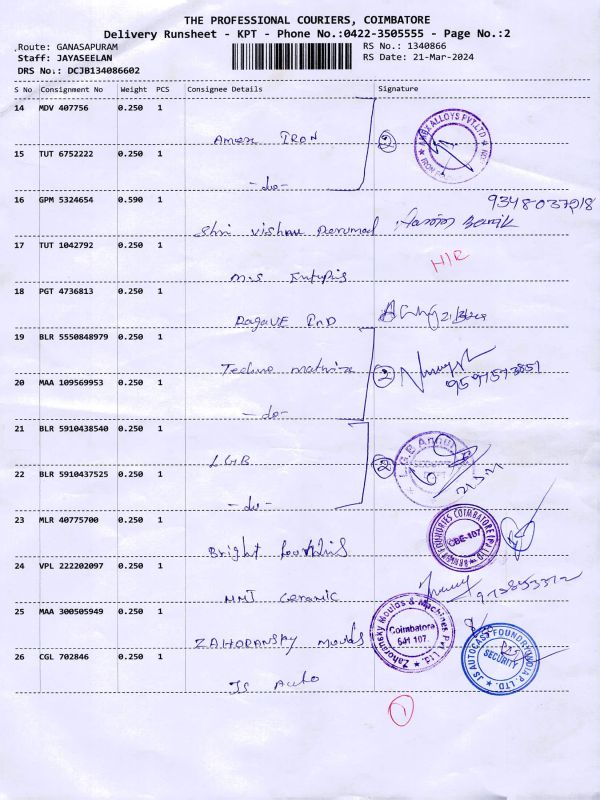 THE PROFESSIONAL COURIERS, COIMBATORE
Delivery Runsheet - KPT - Phone No.:0422-3505555 - Page No.:2
Route: GANASAPURAM
RS No.: 1340866
Staff: JAYASEELAN
RS Date: 21-Mar-2024
DRS No.: DCJB134086602
S No Consignment No Weight PCS Consignee Details Signature
14 MDV 407756 0.250 1
Amex IRON
2
AMEX ALLOYS PVT.LTD
15 TUT 6752222 0.250 1
-do-
16 GPM 5324654 0.590 1
Shri Vishnu Perumal
9348037918
17 TUT 1042792 0.250 1
M.S
18 PGT 4736813 0.250 1
Ragave IND
19 BLR 5550848979 0.250 1
Techno
2
9597573851
20 MAA 109569953 0.250 1
-do-
21 BLR 5910438540 0.250 1
LGB
2
22 BLR 5910437525 0.250 1
-do-
23 MLR 40775700 0.250 1
Bright
BRIGHT FOUNDRIES COIMBATORE (P) LTD
CBE-107
24 VPL 222202097 0.250 1
MMT Ceramic
25 MAA 300505949 0.250 1
ZAHORANSKY Moulds
Zahoransky Moulds & Machines Pvt. Ltd.
Coimbatore
641 107.
26 CGL 702846 0.250 1
JS Auto
JS AUTOCAST FOUNDRY INDIA P. LTD.
SECURITY
1